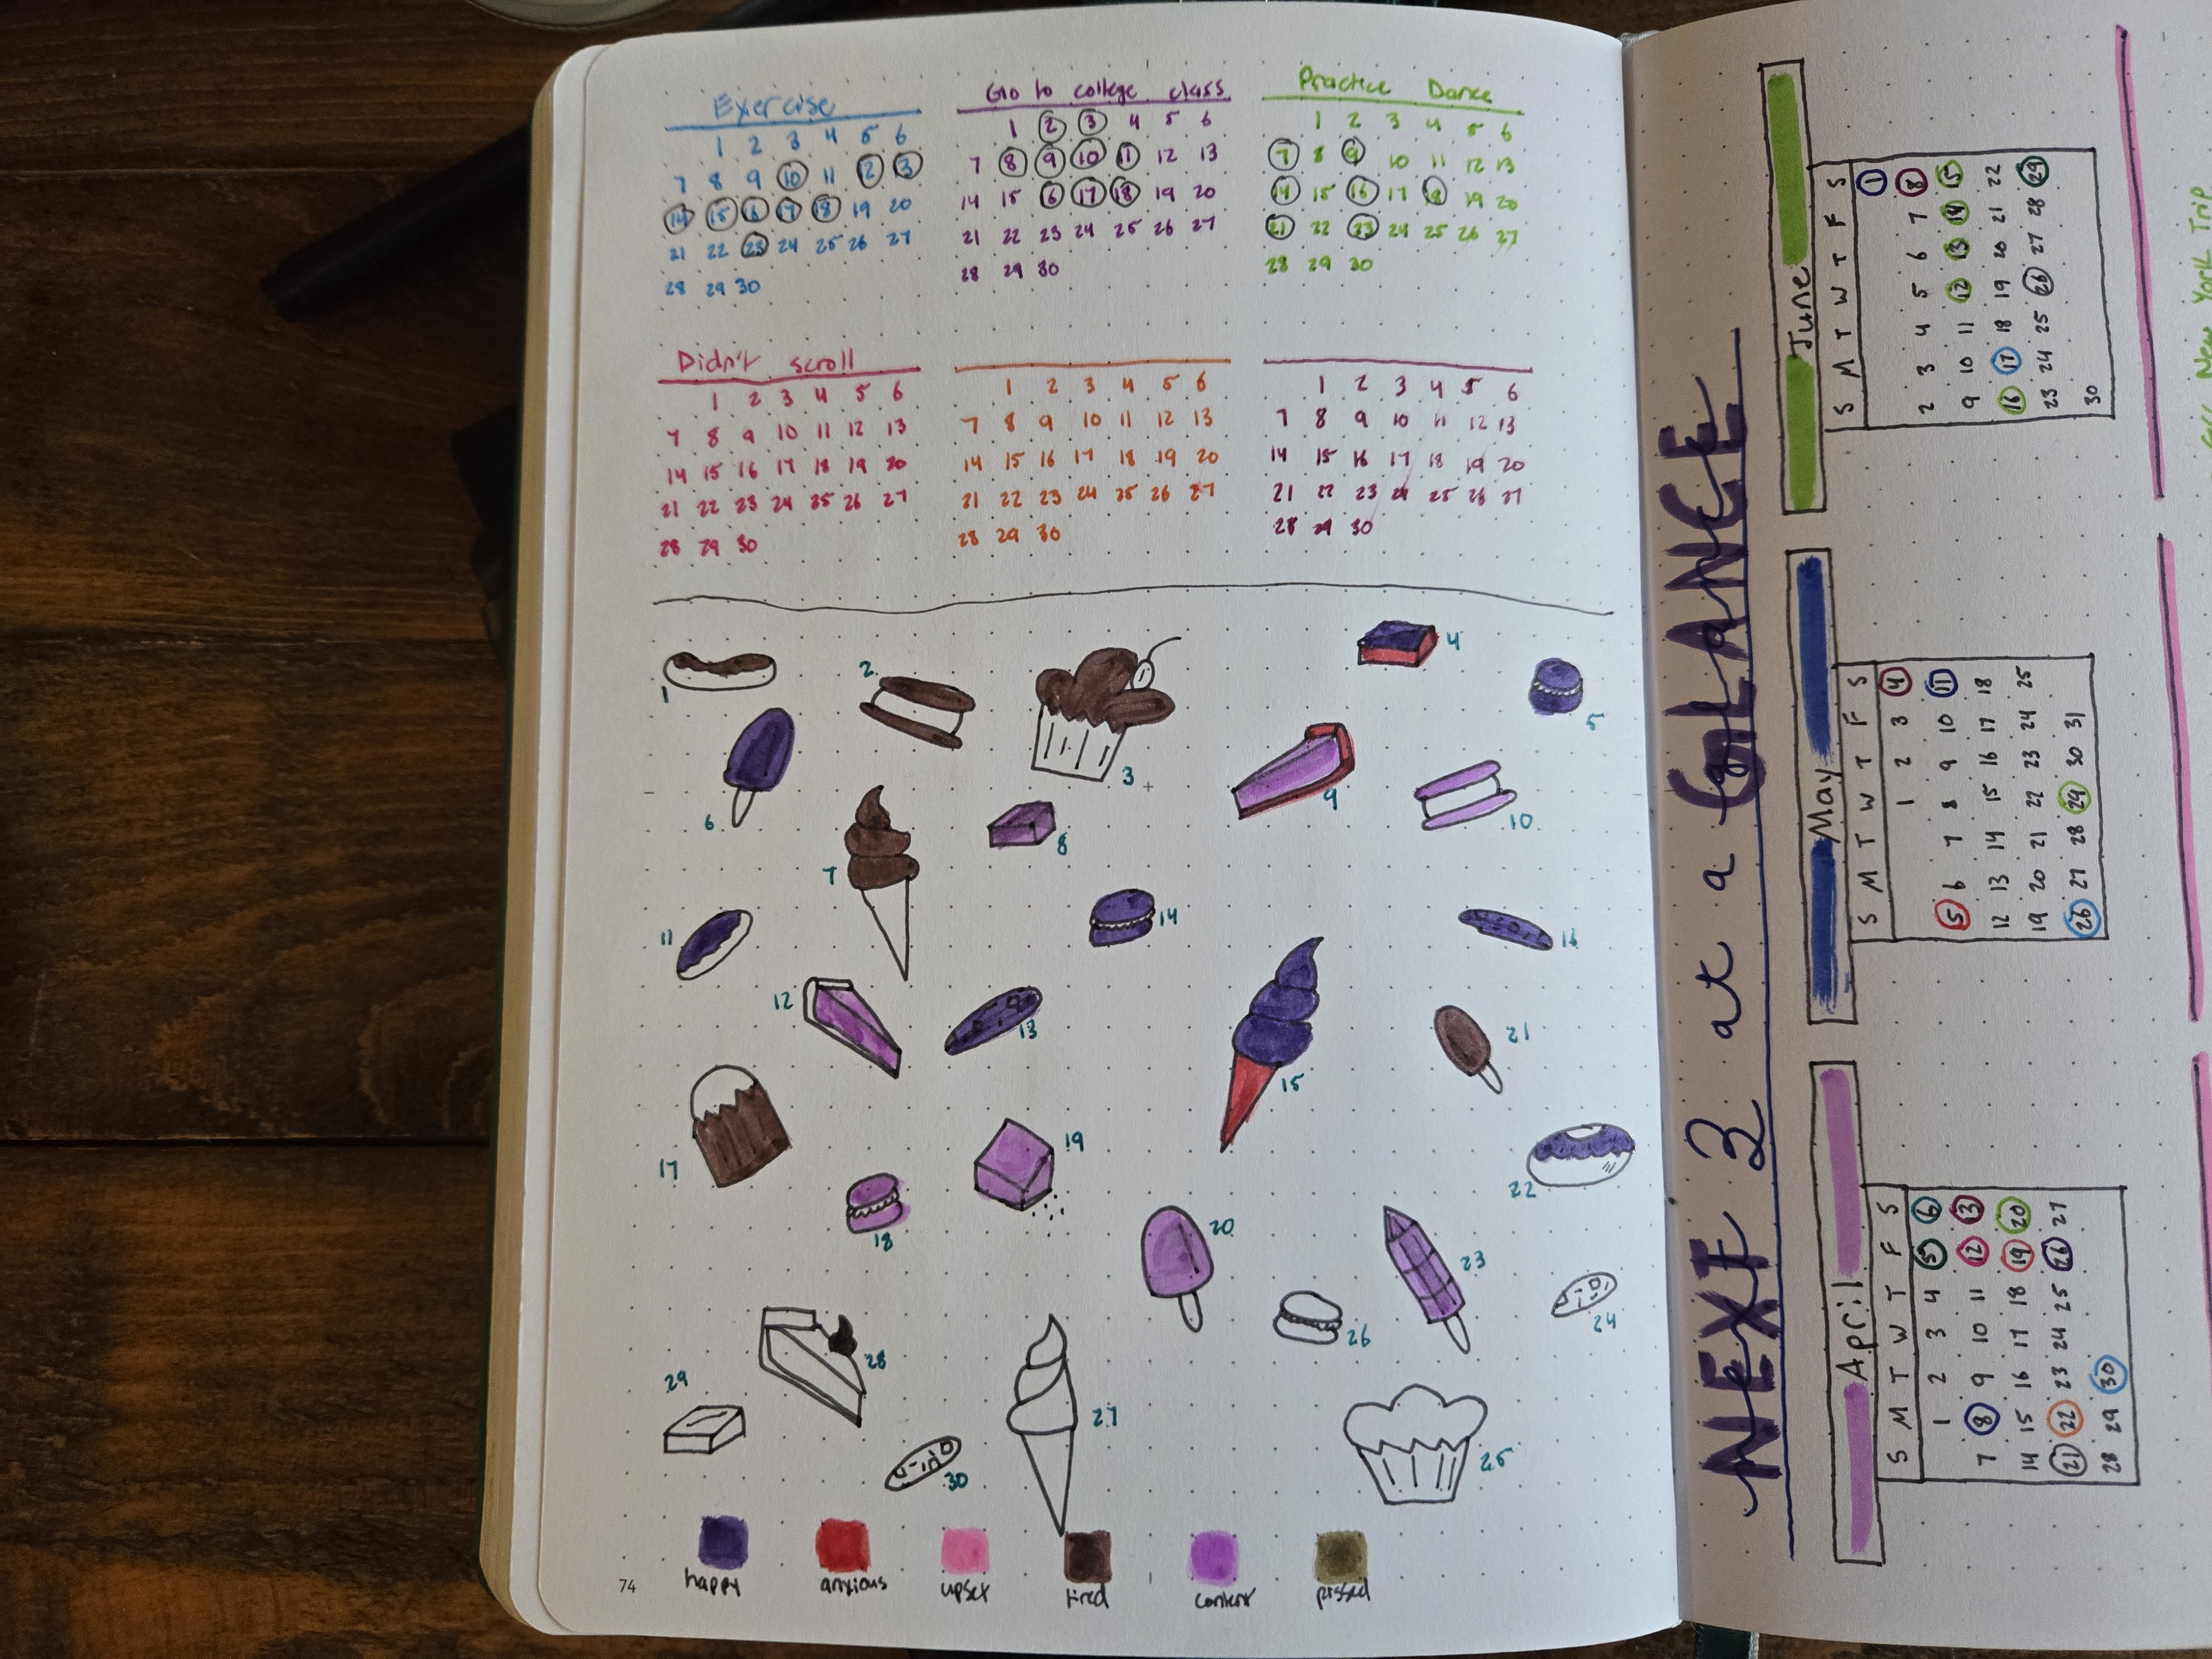 Exercise
1 2 3 4 5 6
7 8 9 10 11 12 13
14 15 16 17 18 19 20
21 22 23 24 25 26 27
28 29 30
Go to college class
1 2 3 4 5 6
7 8 9 10 11 12 13
14 15 16 17 18 19 20
21 22 23 24 25 26 27
28 29 30
Practice Dance
1 2 3 4 5 6
7 8 9 10 11 12 13
14 15 16 17 18 19 20
21 22 23 24 25 26 27
28 29 30
Didn't scroll
1 2 3 4 5 6
7 8 9 10 11 12 13
14 15 16 17 18 19 20
21 22 23 24 25 26 27
28 29 30
1 2 3 4 5 6
7 8 9 10 11 12 13
14 15 16 17 18 19 20
21 22 23 24 25 26 27
28 29 30
1 2 3 4 5 6
7 8 9 10 11 12 13
14 15 16 17 18 19 20
21 22 23 24 25 26 27
28 29 30
1
2
3
4
5
6
7
8
9
10
11
12
13
14
15
16
17
18
19
20
21
22
23
24
25
26
27
28
29
30
happy
anxious
upset
tired
content
pissed
74
NEXT 3 at a GLANCE
April
S M T W T F S
1 2 3 4 5 6
7 8 9 10 11 12 13
14 15 16 17 18 19 20
21 22 23 24 25 26 27
28 29 30
May
S M T W T F S
1 2 3 4
5 6 7 8 9 10 11
12 13 14 15 16 17 18
19 20 21 22 23 24 25
26 27 28 29 30 31
June
S M T W T F S
1
2 3 4 5 6 7 8
9 10 11 12 13 14 15
16 17 18 19 20 21 22
23 24 25 26 27 28 29
30
New York Trip